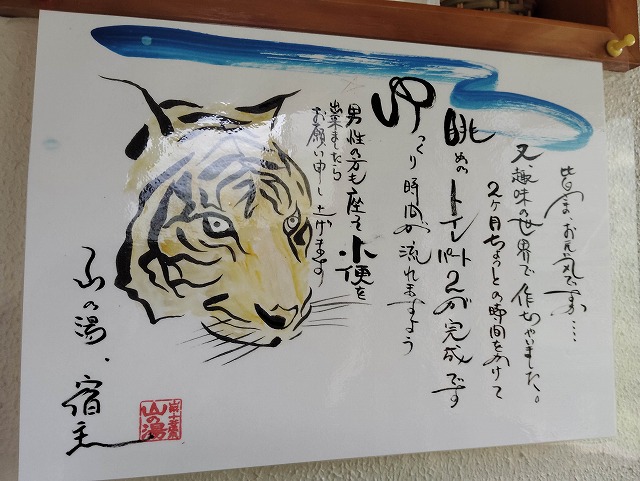 皆さま、お元気ですか....
又趣味の世界で作っちゃいました。
2ヶ月ちょっとの時間をかけて
眺めのトイレパート2が完成です
ゆっくり時間が流れますよう
男性の方も座って小便を
出来ましたら
お願い申し上げます
山の湯、宿主
山の湯